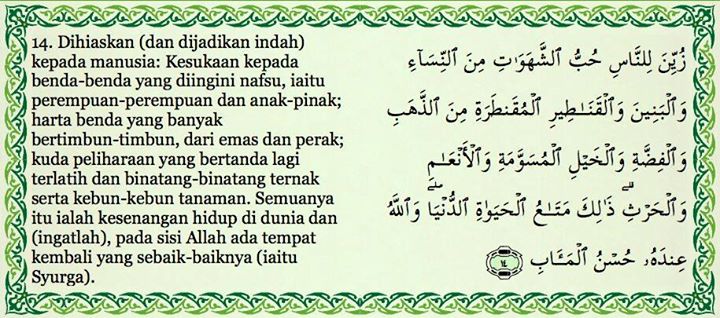 14. Dihiaskan (dan dijadikan indah)
kepada manusia: Kesukaan kepada
benda-benda yang diingini nafsu, iaitu
perempuan-perempuan dan anak-pinak;
harta benda yang banyak
bertimbun-timbun, dari emas dan perak;
kuda peliharaan yang bertanda lagi
terlatih dan binatang-binatang ternak
serta kebun-kebun tanaman. Semuanya
itu ialah kesenangan hidup di dunia dan
(ingatlah), pada sisi Allah ada tempat
kembali yang sebaik-baiknya (iaitu
Syurga).
زُيِّنَ لِلنَّاسِ حُبُّ ٱلشَّهَوَٰتِ مِنَ ٱلنِّسَآءِ
وَٱلۡبَنِينَ وَٱلۡقَنَٰطِيرِ ٱلۡمُقَنطَرَةِ مِنَ ٱلذَّهَبِ
وَٱلۡفِضَّةِ وَٱلۡخَيۡلِ ٱلۡمُسَوَّمَةِ وَٱلۡأَنۡعَٰمِ
وَٱلۡحَرۡثِۗ ذَٰلِكَ مَتَٰعُ ٱلۡحَيَوٰةِ ٱلدُّنۡيَاۖ وَٱللَّهُ
عِندَهُۥ حُسۡنُ ٱلۡمَـَٔابِ ١٤